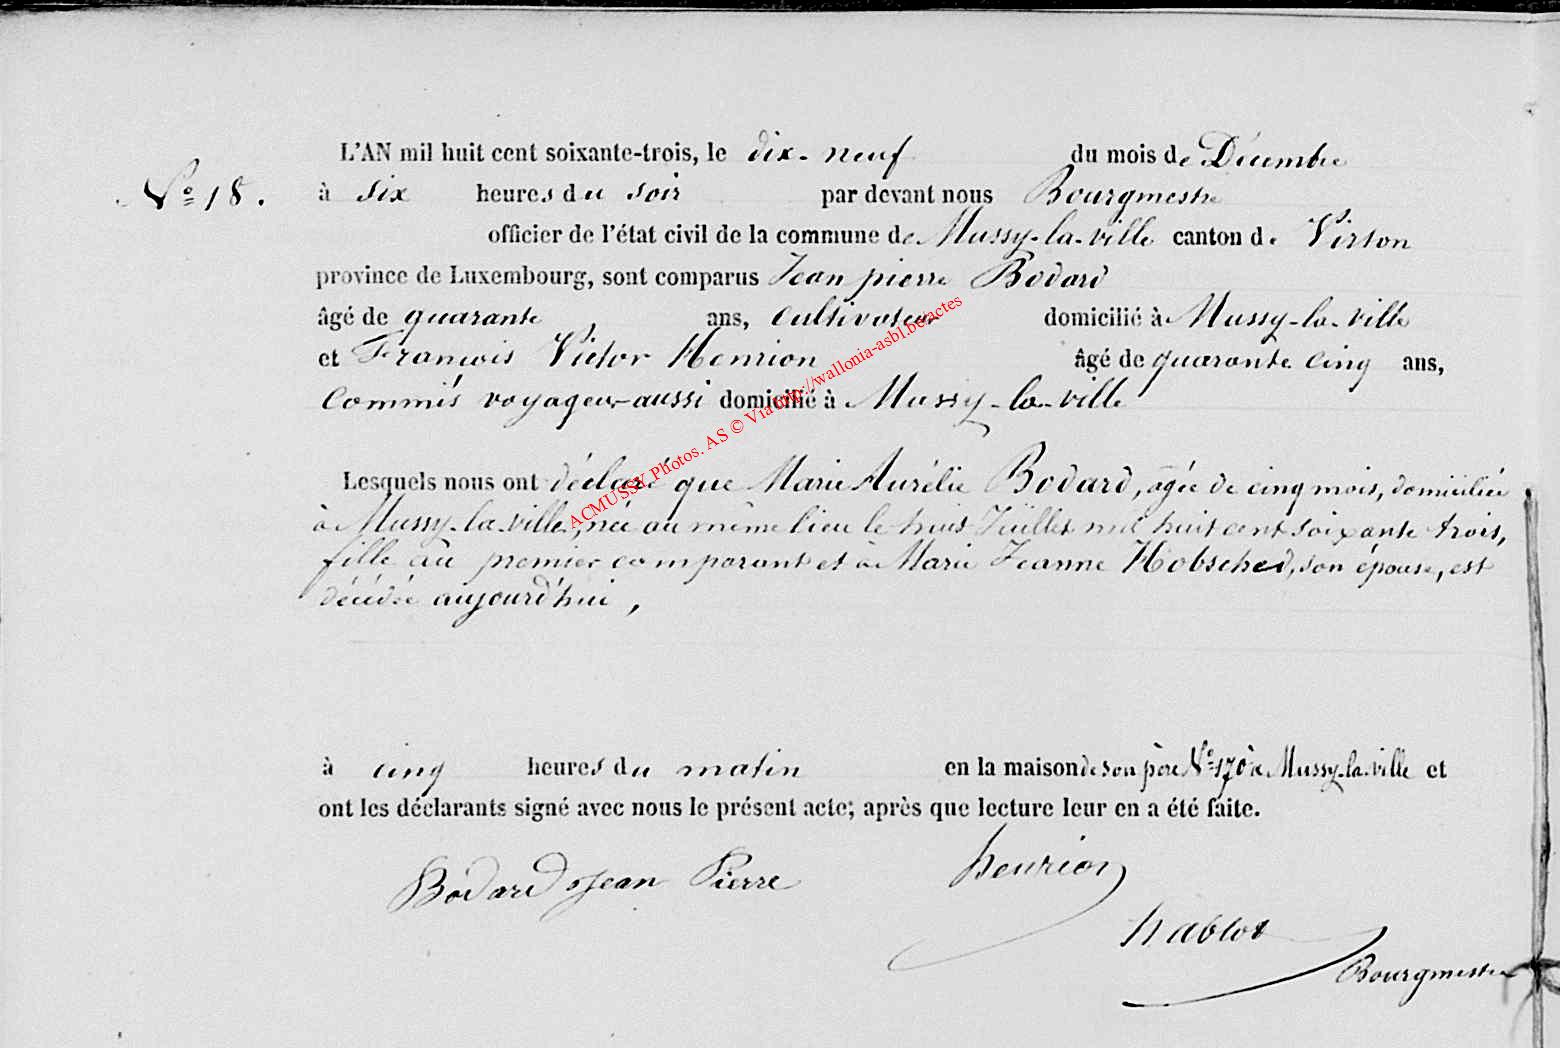 L'AN mil huit cent soixante-trois, le dix-neuf du mois de Décembre
N° 18. à six heures du soir par devant nous Bourgmestre
officier de l'état civil de la commune de Mussy-la-ville canton de Virton
province de Luxembourg, sont comparus Jean pierre Bodard
âgé de quarante ans, Cultivateur domicilié à Mussy-la-ville
et François Victor Henrion âgé de quarante cinq ans,
Commis voyageur aussi domicilié à Mussy-la-ville
ACMUSSY Photos. AS © Via http://wallonia-asbl.be/actes
Lesquels nous ont déclaré que Marie Aurélie Bodard, agée de cinq mois, domiciliée
à Mussy-la-ville, née au même lieu le huit Juillet mil huit cent soixante trois,
fille au premier comparant et à Marie Jeanne Hobsched, son épouse, est
décédée aujourd'hui,
à cinq heures du matin en la maison de son père N° 170 à Mussy-la-ville et
ont les déclarants signé avec nous le présent acte; après que lecture leur en a été faite.
Bodard Jean Pierre henrion
hablot
Bourgmestre